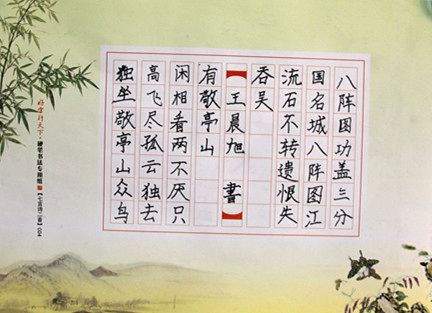 八阵图功盖三分
国名城八阵图江
流石不转遗恨失
吞吴
王晨旭 書
有敬亭山
闲相看两不厌只
高飞尽孤云独去
独坐敬亭山众鸟
硬笔书法专用纸